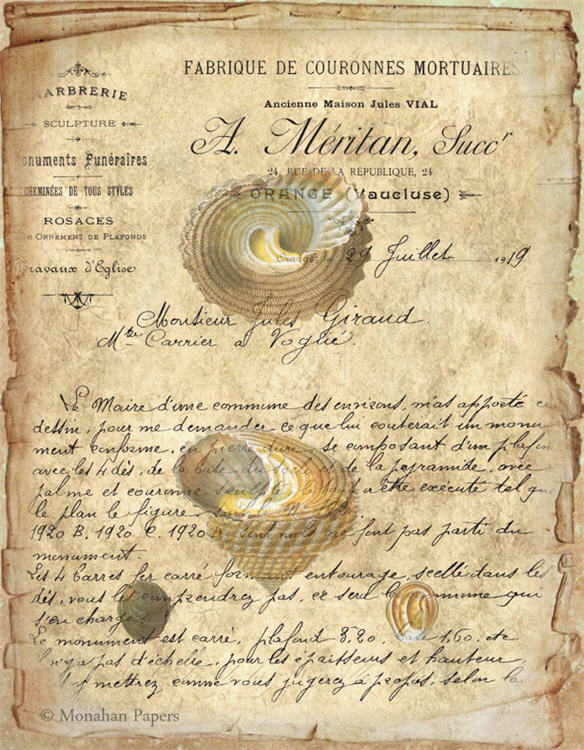 MARBRERIE
SCULPTURE
Monuments Funéraires
CHEMINÉES DE TOUS STYLES
ROSACES
ORNEMENT DE PLAFONDS
Travaux d'Eglise
FABRIQUE DE COURONNES MORTUAIRES
Ancienne Maison Jules VIAL
A. Méritan, Succr
24, RUE DE LA RÉPUBLIQUE, 24
ORANGE (Vaucluse)
Orange, le 29 Juillet 1919
Monsieur Jules Giraud.
Mtre Carrier à Voglié.
Le Maire d'une commune des environs, m'as apporté
dessin, pour me demander ce que lui couterait un monu
ment conforme, en pierre dure, se composant d'un plafon
avec les 4 dés, de la base du socle et de la pyramide, avec
palme et couronne être exécuté tel que
le plan le figure
1920 B. 1920 C. 1920 ne font pas parti du
monument.
Les 4 barres fer carré formant entourage, scellé dans les
dés, vous comprendrez pas, ce sera la commune qui
s'en charge.
Le monument est carré, plafond 3,20, 1,60, etc
n'y a pas d'échelle, pour les épaisseurs et hauteur
y mettrez comme vous jugerez à propos, selon la
© Monahan Papers